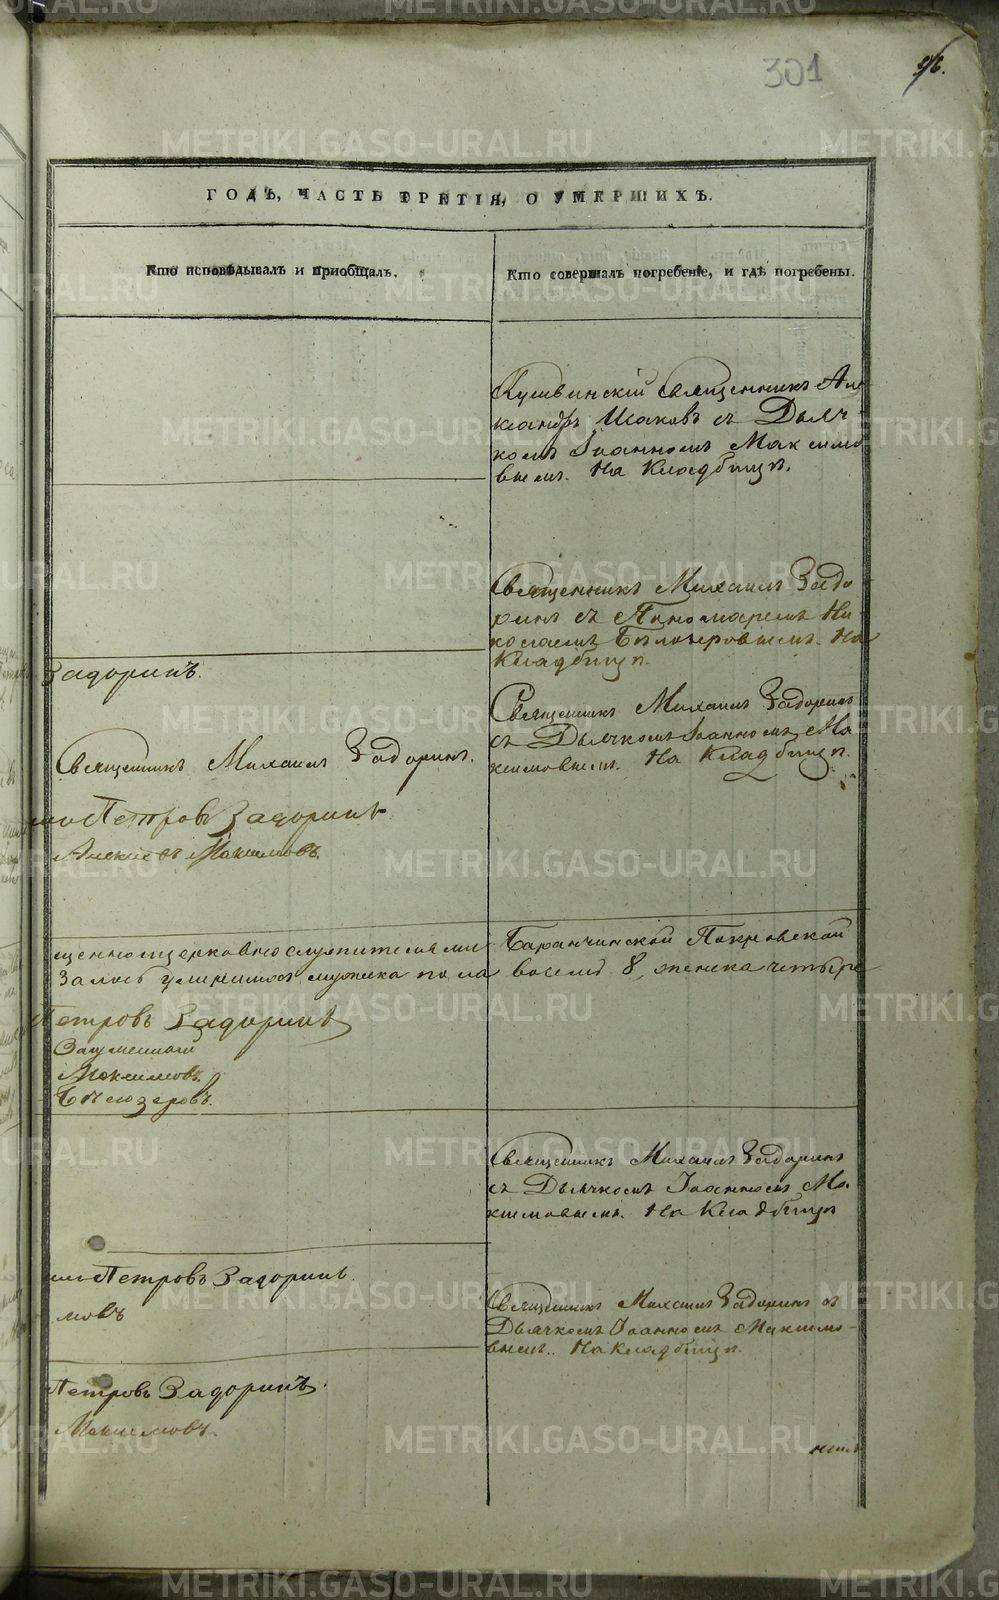 301
96.
ГОДЪ, ЧАСТЬ ТРЕТІЯ, О УМЕРШИХЪ.
Кто исповѣдывалъ и приобщалъ.
Кто совершалъ погребеніе, и гдѣ погребены.
Кушвинскій Священникъ Але
ксандръ Исаковъ съ Дьяч-
комъ Іоанномъ Максимо
вымъ. На Кладбищѣ.
Священникъ Михаилъ Задо
ринъ съ Пономаремъ Ни
колаемъ Бѣлозеровымъ. На
Кладбищѣ.
Задоринъ.
Священникъ Михаилъ Задоринъ
съ Дьячкомъ Іоанномъ Ма
ксимовымъ. На Кладбищѣ.
Священникъ Михаилъ Задоринъ.
Петровъ Задоринъ
Алексѣевъ Максимовъ.
щенноцерковнослужителями Баранчинской Покровской
умершихъ мужеска пола восемь 8, женска четыре
Петровъ Задоринъ
Максимовъ.
Бѣлозеровъ.
Священникъ Михаилъ Задоринъ
съ Дьячкомъ Іоанномъ Ма
ксимовымъ. На Кладбищѣ
Петровъ Задоринъ.
мовъ
Священникъ Михаилъ Задоринъ съ
Дьячкомъ Іоанномъ Максимо-
вымъ. На Кладбищѣ.
Петровъ Задоринъ.
Максимовъ.
METRIKI.GASO-URAL.RU